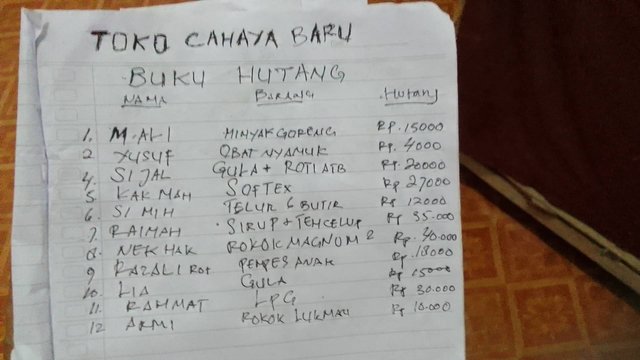 TOKO CAHAYA BARU
BUKU HUTANG
NAMA BARANG Hutang
1. M. ALI MINYAK GORENG Rp. 15000
2 YUSUF OBAT NYAMUK Rp. 4000
4. SI JAL GULA + ROTI ATB Rp. 20000
5. KAK MAH SOFTEX Rp 27000
6. SI MIH TELUR 6 BUTIR Rp 12000
7. RAIMAH SIRUP + TEH CELUP Rp 35.000
8. NEK HAK ROKOK MAGNUM 2 Rp. 40.000
9 RAZALI PEMPES ANAK Rp. 18000
10. LIA GULA Rp 15000
11. RAHMAT LPG Rp 30.000
12 ARMI ROKOK LUKMAN Rp 10.000